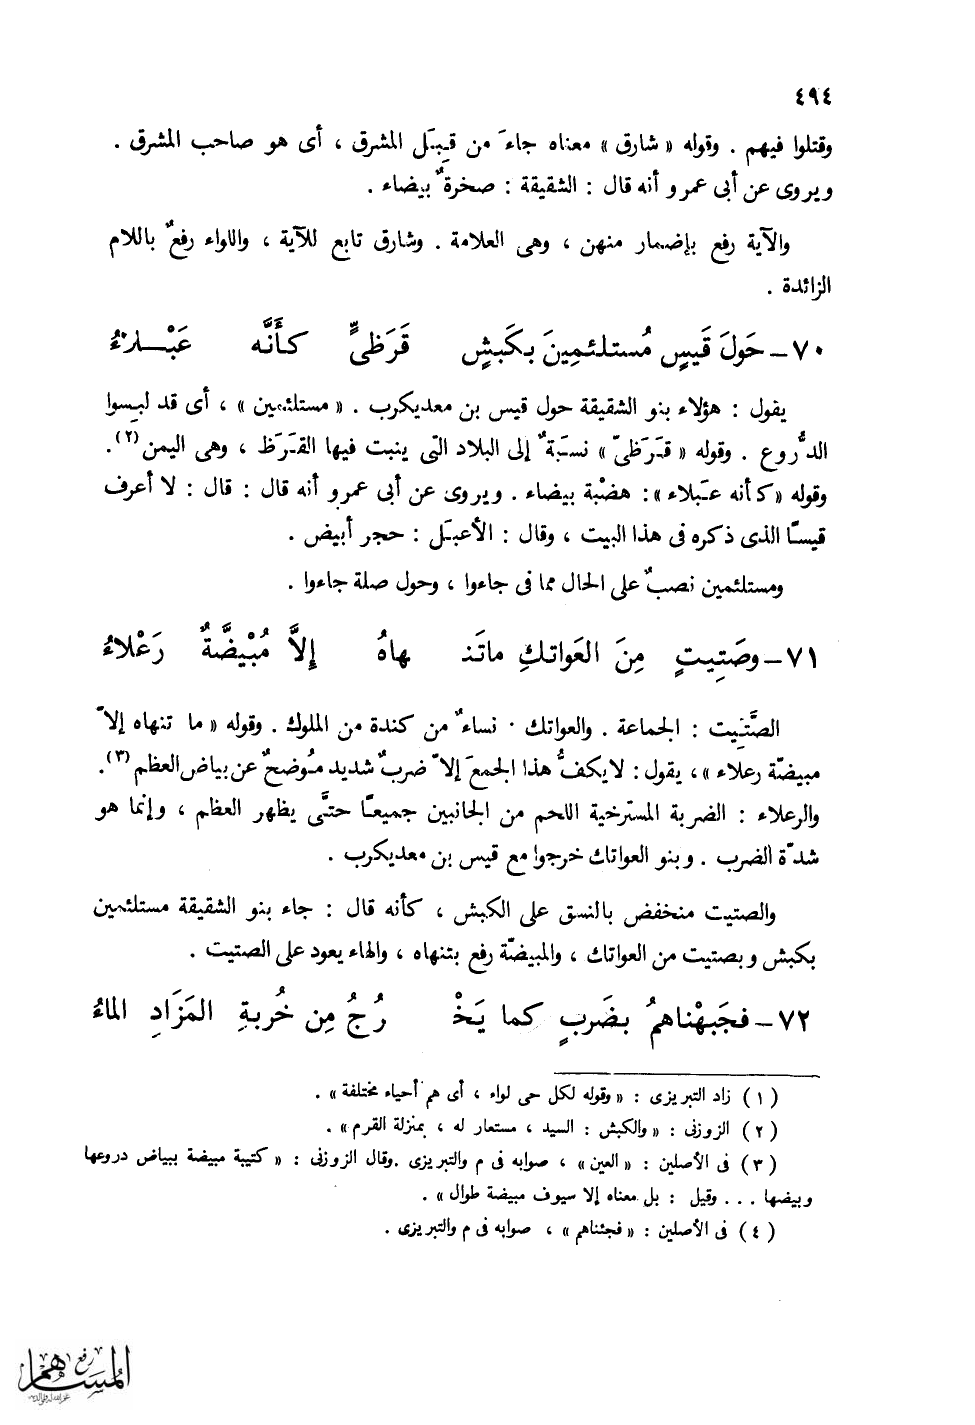 ٤٩٤
وقتلوا فيهم . وقوله « شارق » معناه جاءَ من قِبَل المشرق ، أى هو صاحب المشرق .
ويروى عن أبى عمرو أنه قال : الشقيقة : صخرةٌ بيضاء .
والآية رفع بإضمار منهن ، وهى العلامة . وشارق تابع للآية ، واللواء رفعٌ باللام
الزائدة .
٧٠ – حَولَ قَيسٍ مُستلئمِينَ بكَبشٍ قَرَظىٍّ كأنَّه عَبْلاءُ
يقول : هؤلاء بنو الشقيقة حول قيس بن معديكرب . « مستلئمين » ، أى قد لبِسوا
الدُّروع . وقوله « قَرَظىّ » نسبَةٌ إلى البلاد التى ينبت فيها القَرَظ ، وهى اليمن (٢) .
وقوله « كأنه عَبلاء » : هضْبة بيضاء . ويروى عن أبى عمرو أنه قال : قال : لا أعرف
قيسًا الذى ذكره فى هذا البيت ، وقال : الأعبَل : حجر أبيض .
ومستلئمين نصبٌ على الحال مما فى جاءوا ، وحول صلة جاءوا .
٧١ – وصَتِيتٍ مِنَ العَواتكِ ماتَنـ ـهاهُ إلَّا مُبْيِضَّةٌ رَعْلاءُ
الصَّتِيت : الجماعة . والعواتك . نساءٌ من كندة من الملوك . وقوله « ما تنهاه إلاّ
مبيضّة رعلاء » ، يقول : لا يكفُّ هذا الجمعَ إلاّ ضربٌ شديد مُوضحٌ عن بياض العظم (٣) .
والرعلاء : الضربة المسترخية اللحم من الجانبين جميعًا حتَّى يظهر العظم ، وإنما هو
شدّة الضرب . وبنو العواتك خرجوا مع قيس بن معديكرب .
والصتيت منخفض بالنسق على الكبش ، كأنه قال : جاء بنو الشقيقة مستلئمين
بكبش وبصتيت من العواتك ، والمبيضّة رفع بتنهاه ، والهاء يعود على الصتيت .
٧٢ – فجَبهْناهمُ بضَربٍ كما يَخْـ ـرُجُ مِن خُربةِ المَزَادِ الماءُ
( ١ ) زاد التبريزى : « وقوله لكل حى لواء ، أى هم أحياء مختلفة » .
( ٢ ) الزوزنى : « والكبش : السيد ، مستعار له ، بمنزلة القرم » .
( ٣ ) فى الأصلين : « العين » ، صوابه فى م والتبريزى . وقال الزوزنى : « كتيبة مبيضة ببياض دروعها
وبيضها . . . وقيل : بل معناه إلا سيوف مبيضة طوال » .
( ٤ ) فى الأصلين : « فجئناهم » ، صوابه فى م والتبريزى .